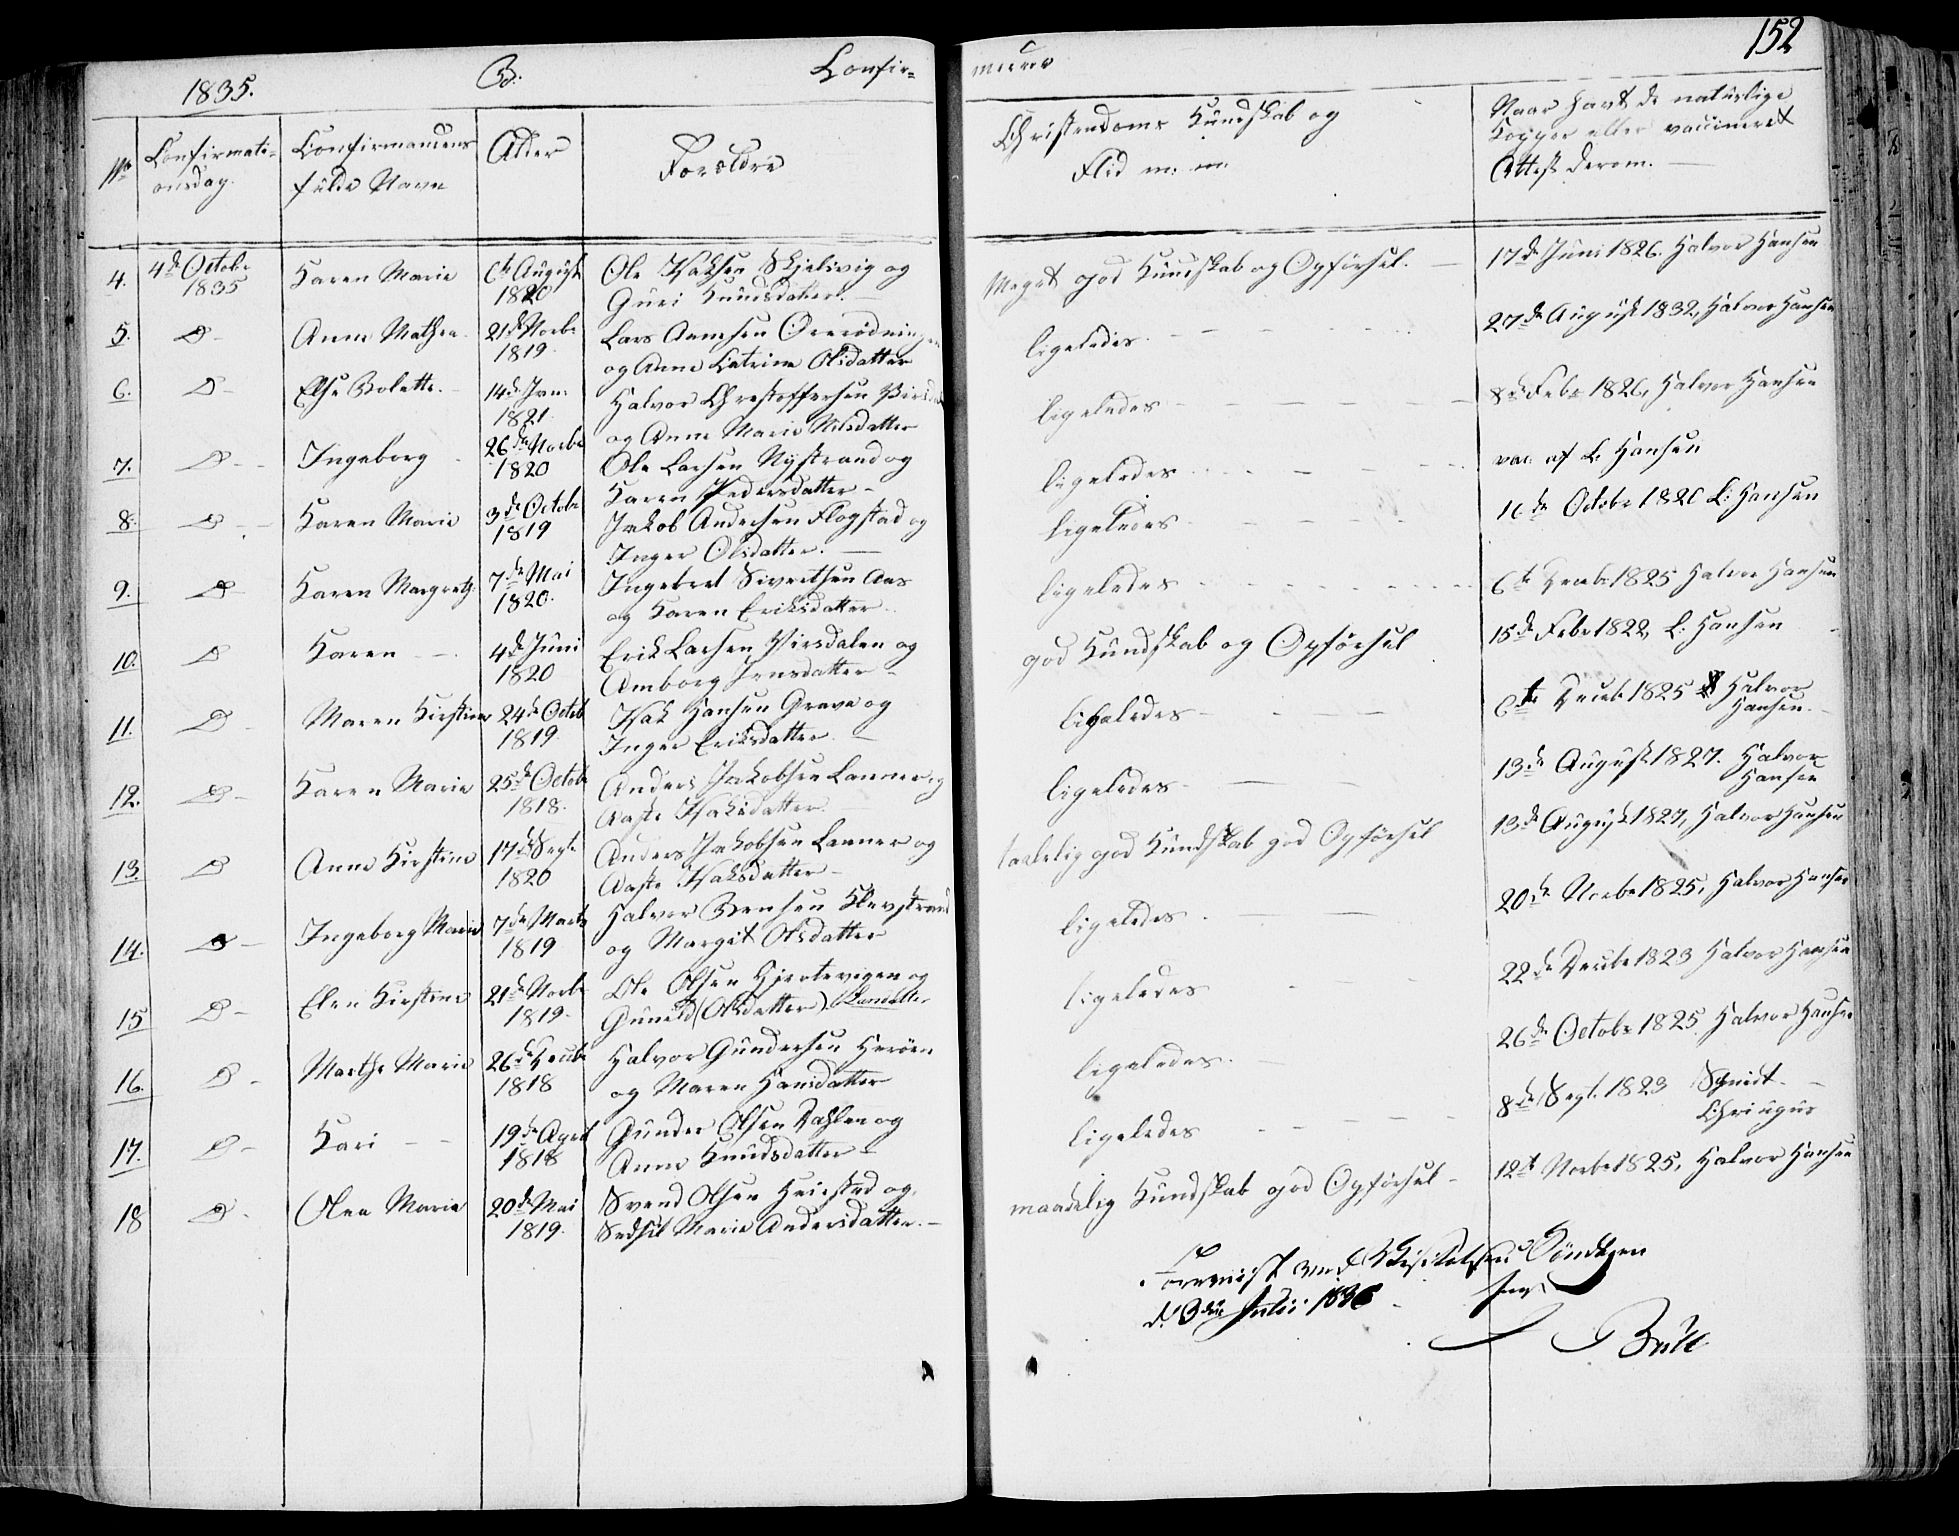 1835.
B.
Confir=
merede
152
No
Confirmati-
onsdag.
Confirmandens
fulde Navn
Alder
Forældre
Christendoms Kundskab og
Flid m: m:
Naar havt de naturlige
Kopper eller vaccineret
Attest derom.
4. 4de Octobr 1835 Karen Marie 6te August 1820 Ole Isaksen Skjelsvig og
Guri Knudsdatter. Meget god Kundskab og Opførsel. 17de Juni 1826. Halvor Hansen
5. D- Anne Mathea 21de Novbr 1819. Lars Aamsen
og Anne Catrine Olsdatter ligeledes. 27de August 1832, Halvor Hansen
6. D- Else Bolette. 14de Jan: 1821. Halvor Christoffersen
og Anne Marie Nilsdatter ligeledes 8de Febr 1826, Halvor Hansen
7. D- Ingeborg 26de Novbr 1820 Ole Larsen Nystrand og
Karen Pedersdatter ligeledes vac. af L. Hansen
8. D- Karen Marie 3de Octobr 1819 Jakob Andersen Flogstad og
Inger Olsdatter. ligeledes 16de Octobr 1820 L: Hansen
9. D- Karen Margrete 7de Mai 1820. Ingebret Sivertsen Aas
og Karen Eriksdatter ligeledes 6te Decebr 1825 Halvor Hansen
10. D Karen 4de Juni 1820 Erik Larsen Versdalen og
Amborg Jensdatter god Kundskab og Opførsel 15de Febr 1822, L: Hansen
11. D- Maren Kirstine 24de Octob 1819 Isak Hansen Grava og
Inger Eriksdatter. ligeledes 6te Decebr 1825 Halvor
Hansen.
12. D- Karen Marie 25de Octobr 1818. Anders Jakobsen Lanner og
Aaste Isaksdatter. ligeledes 13de August 1827. Halvor
Hansen
13. D Anne Kirstine 17de Septr 1820 Anders Jakobsen Lanner og
Aaste Isaksdatter taalelig god Kundskab god Opførsel 13de August 1827, Halvor Hansen
14. D- Ingeborg Marie 7de Marts 1819 Halvor Bensen Klevstrand
og Margit Olsdatter ligeledes 20de Novbr 1825, Halvor Hansen
15 D- Elen Kirstine 21de Novbr 1819. Ole Olsen Hjertevigen og
Gunild (Olsdatter) ligeledes 22de Decebr 1823 Halvor Hansen
16. D- Marthe Marie 26de Decebr 1818 Halvor Gundersen Herøen
og Maren Hansdatter ligeledes. 26de Octobr 1825. Halvor Hansen
17. D- Kari 19de April 1818 Gunder Olsen Dahlen og
Anne Knudsdatter ligeledes 8de Sept. 1823 Schmidt
Chirurgus
18 D- Olea Marie 20de Mai 1819. Svend Olsen Heirstad og
Sedsel Marie Andersdatter. maadelig Kundskab god Opførsel 12te Novbr 1825, Halvor Hansen
Foreviist ved Visitatsen
d. 3die Julii 1836